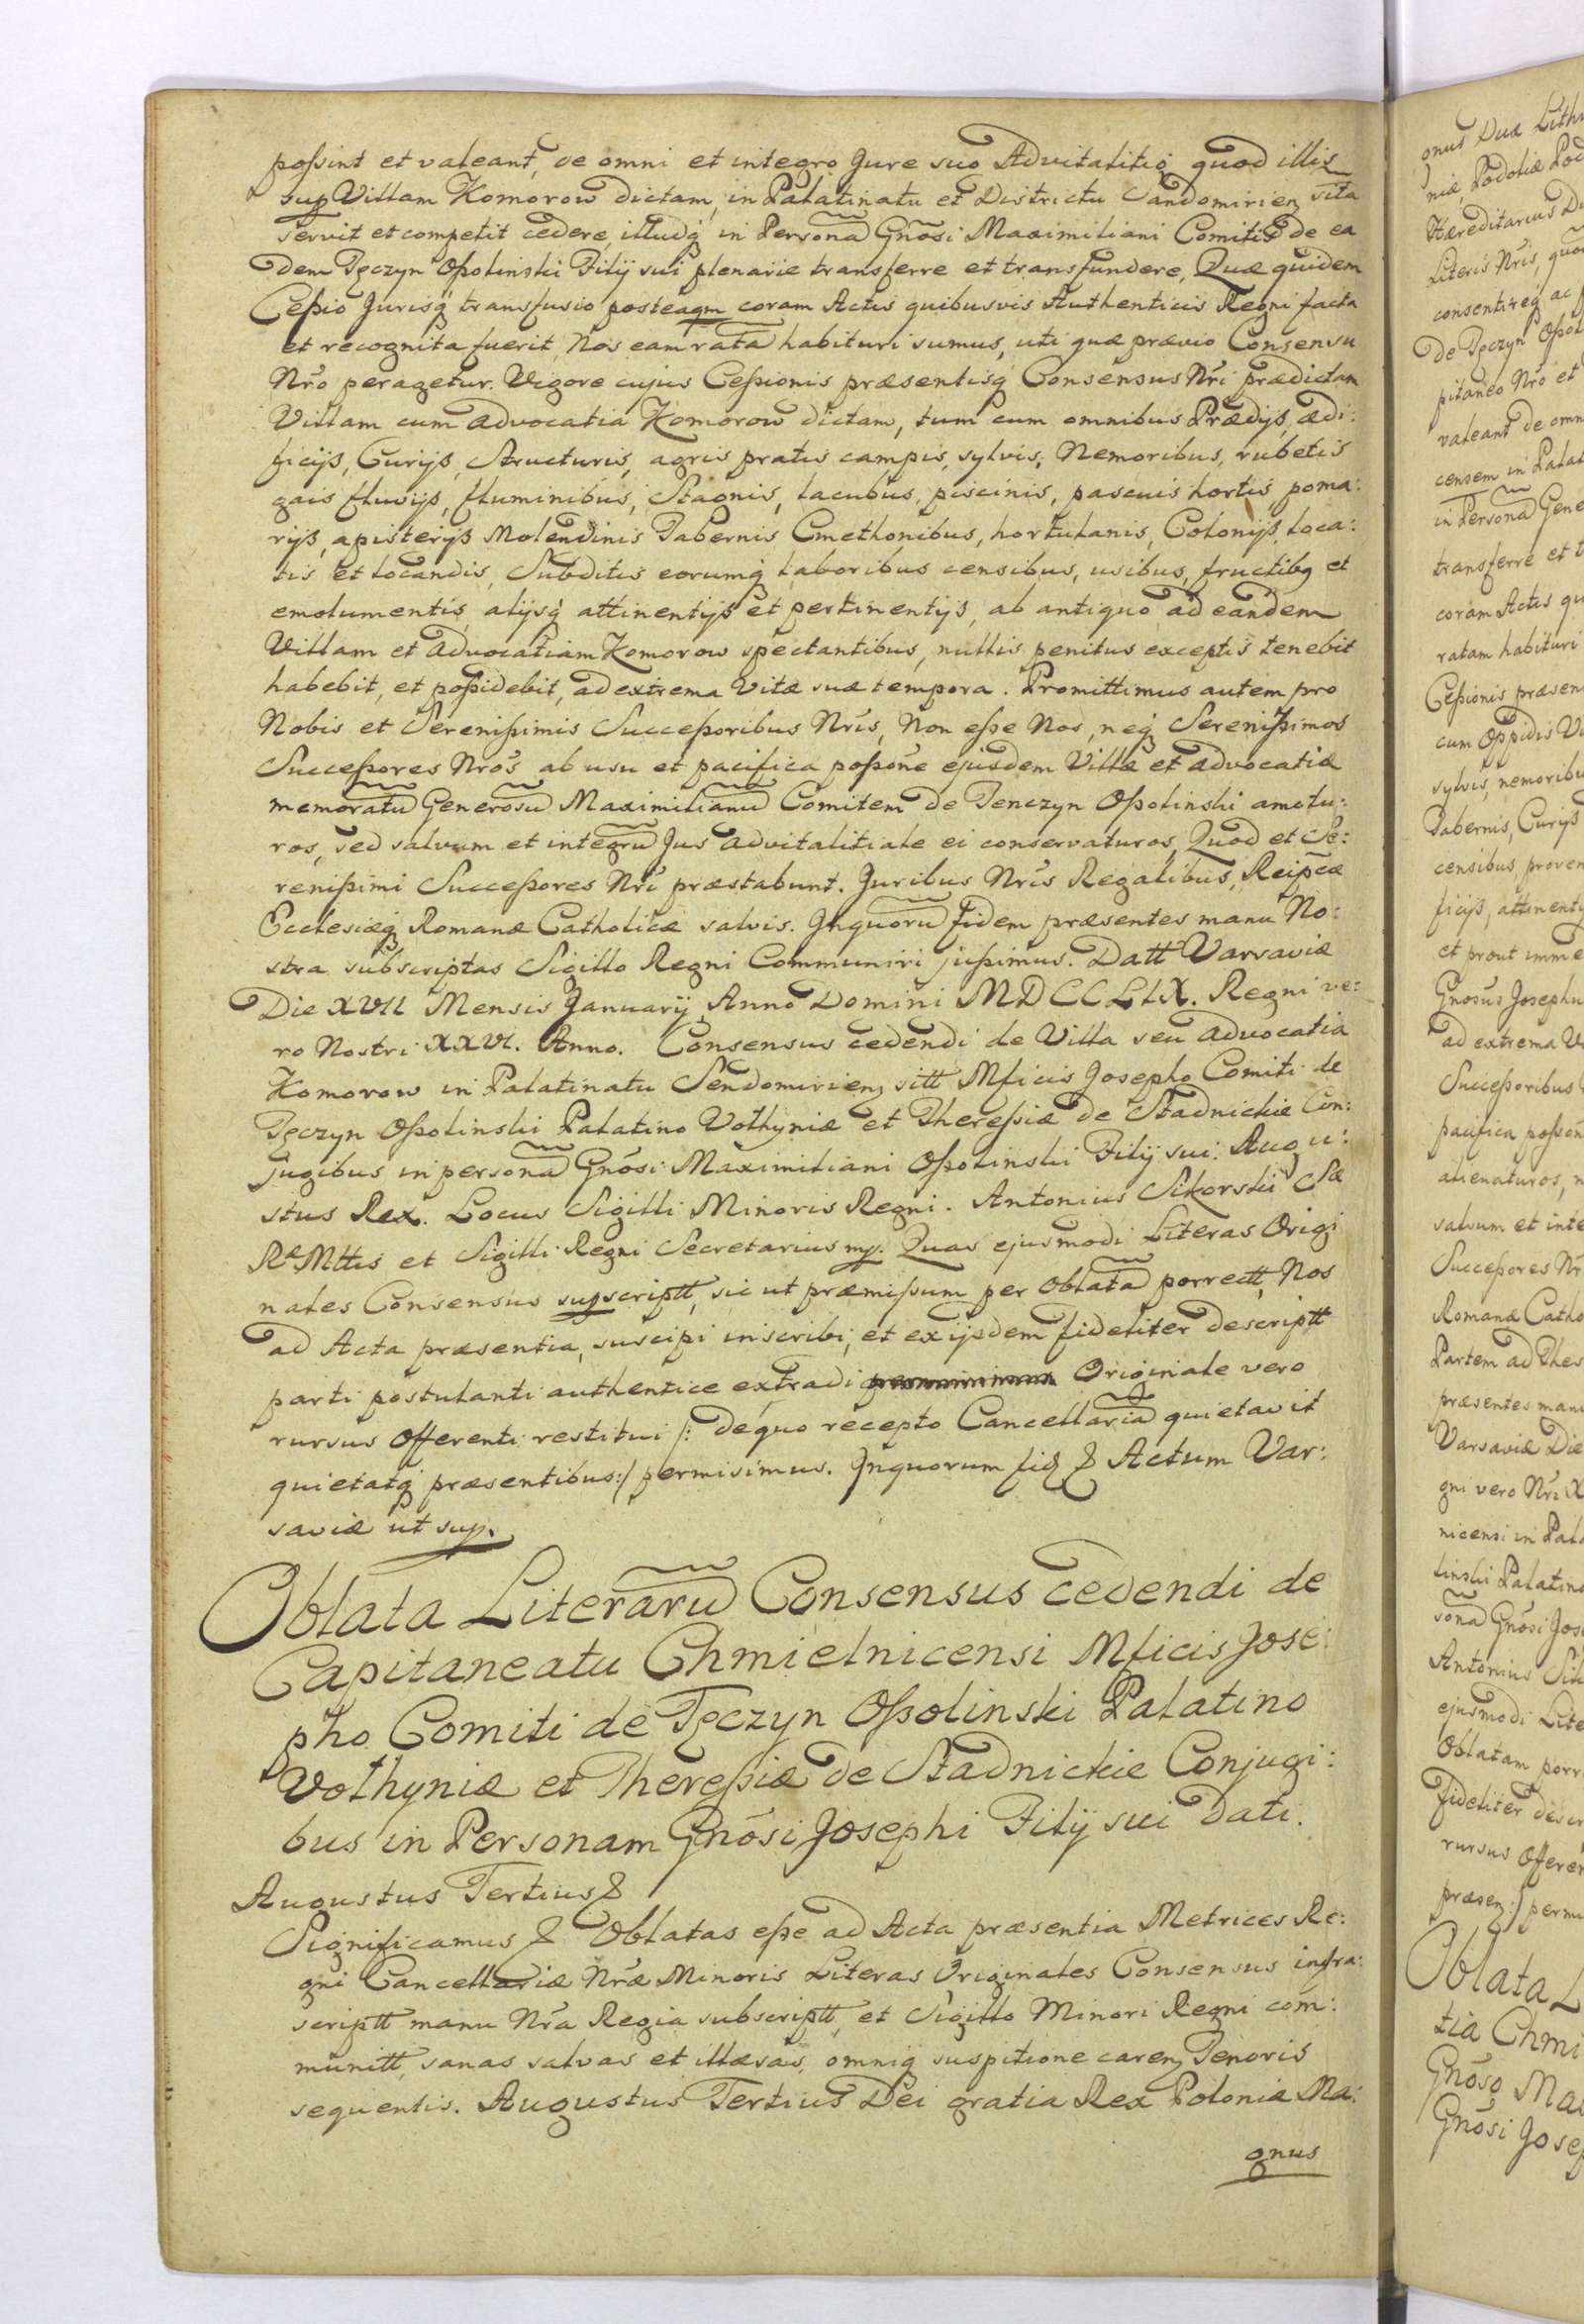 possint et valeant, de omni et integro Jure suo Advitalitio, quod illis
sup Villam Komorow dictam, in Palatinatu et Districtu Sandomirien sita
servit et competit cedere, illudq in Persona Gnosi Maximiliani Comitis de ea
dem Tęczyn Ossolinski Filij sui plenarie transferre et transfundere, Quæ quidem
Cessio Jurisq transfusio posteaqm coram Actis quibusvis Authenticis Regni facta
et recognita fuerit, Nos eam rata habituri sumus, uti quæ prævio Consensu
Nro peragetur. Vigore cujus Cessionis præsentisq Consensus Nri prædictam
Villam cum advocatia Komorow dictam, tum cum omnibus Prædijs, ædi:
ficijs, Curijs, Structuris, agris pratis campis, sylvis, Nemoribus, rubetis
gais fluvijs, fluminibus, Stagnis, lacubus, piscinis, pascuis hortis poma:
rijs, apisterijs Molendinis Tabernis Cmethonibus, hortulanis, Colonijs, loca:
tis et locandis, Subditis eorumq laboribus censibus, usibus, fructibq et
emolumentis, alijsq attinentijs et pertinentijs, ab antiquo ad eandem
Villam et advocatiam Komorow spectantibus, nullis penitus exceptis tenebit
habebit, et possidebit, ad extrema Vitæ suæ tempora. Promittimus autem pro
Nobis et Serenissimis Successoribus Nris, Non esse Nos, neq Serenissimos
Successores Nros ab usu et pacifica possone ejusdem Villæ et advocatiæ
memoratu Generosu Maximilianu Comitem de Tenczyn Ossolinski amotu:
ros, sed salvum et integru Jus advitalitiale ei conservaturos, Quod et Se:
renissimi Successores Nri præstabunt. Juribus Nris Regalibus, Reipcæ
Ecclesiæq Romanæ Catholicæ salvis. Inquoru fidem præsentes manu No:
stra subscriptas Sigillo Regni Communiri jussimus. Datt Varsaviæ
Die XVII Mensis Januarij Anno Domini MDCCLIX. Regni ve:
ro Nostri XXVI. Anno. Consensus cedendi de Villa seu advocatia
Komorow in Palatinatu Sendomirien sitt Mficis Josepho Comiti de
Tęczyn Ossolinski Palatino Volhyniæ et Theressiæ de Stadnickie Con:
jugibus in persona Gnosi Maximiliani Ossolinski Filij sui. Augu:
stus Rex. Locus Sigilli Minoris Regni. Antonius Sikorski Sæ
Ræ Mttis et Sigilli Regni Secretarius mp. Quas ejusmodi Literas Origi
nales Consensus supscriptt, sic ut præmissum per oblata porrectt, Nos
ad Acta præsentia, suscipi inscribi, et ex ijsdem fideliter descriptt
parti postulanti authentice extradi Originale vero
rursus Offerenti restitui /: de quo recepto Cancellaria quietavit
quietatq præsentibus:/ permisimus. Inquorum fid & Actum Var:
saviæ ut sup.
Oblata Literaru Consensus cedendi de
Capitaneatu Chmielnicensi Mficis Jose:
pho Comiti de Tęczyn Ossolinski Palatino
Volhyniæ et Theressiæ de Stadnickie Conjugi:
bus in Personam Gnosi Josephi Filij sui dati.
Augustus Tertius &
Significamus & Oblatas esse ad Acta præsentia Metrices Re:
gni Cancellariæ Nræ Minoris Literas Originales Consensus infra:
scriptt manu Nra Regia subscriptt, et Sigillo Minori Regni com:
munitt, sanas salvas et illæsas, omniq suspitione caren Tenoris
sequentis. Augustus Tertius Dei gratia Rex Poloniæ Ma:
gnus
gnus Dux Lith
niæ, Podoliæ Pod
Hæreditarius Du
Literis Nris, quo
consentireq ac
de Tęczyn Ossol
pitaneo Nro et
valeant de omn
censem in Palat
in Persona Gene
transferre et t
coram Actis qu
ratam habituri
Cessionis præsen
cum Oppidis Vi
sylvis, nemoribu
Tabernis, Curijs
censibus proven
ficijs, attinentij
et prout imme
Gnosus Josephu
ad extrema Vi
Successoribus
pacifica posson
alienaturos, n
salvum et inte
Successores Nr
Romanæ Catho
Partem ad Thes
præsentes manu
Varsaviæ Die
gni vero Nri X
nicensi in Pala
linski Palatino
sona Gnosi Jos
Antonius Sik
ejusmodi Lite
Oblatam porr
fideliter descr
rursus Offeren
præsen:/ permi
Oblata L
tia Chmi
Gnoso Ma
Gnosi Josep